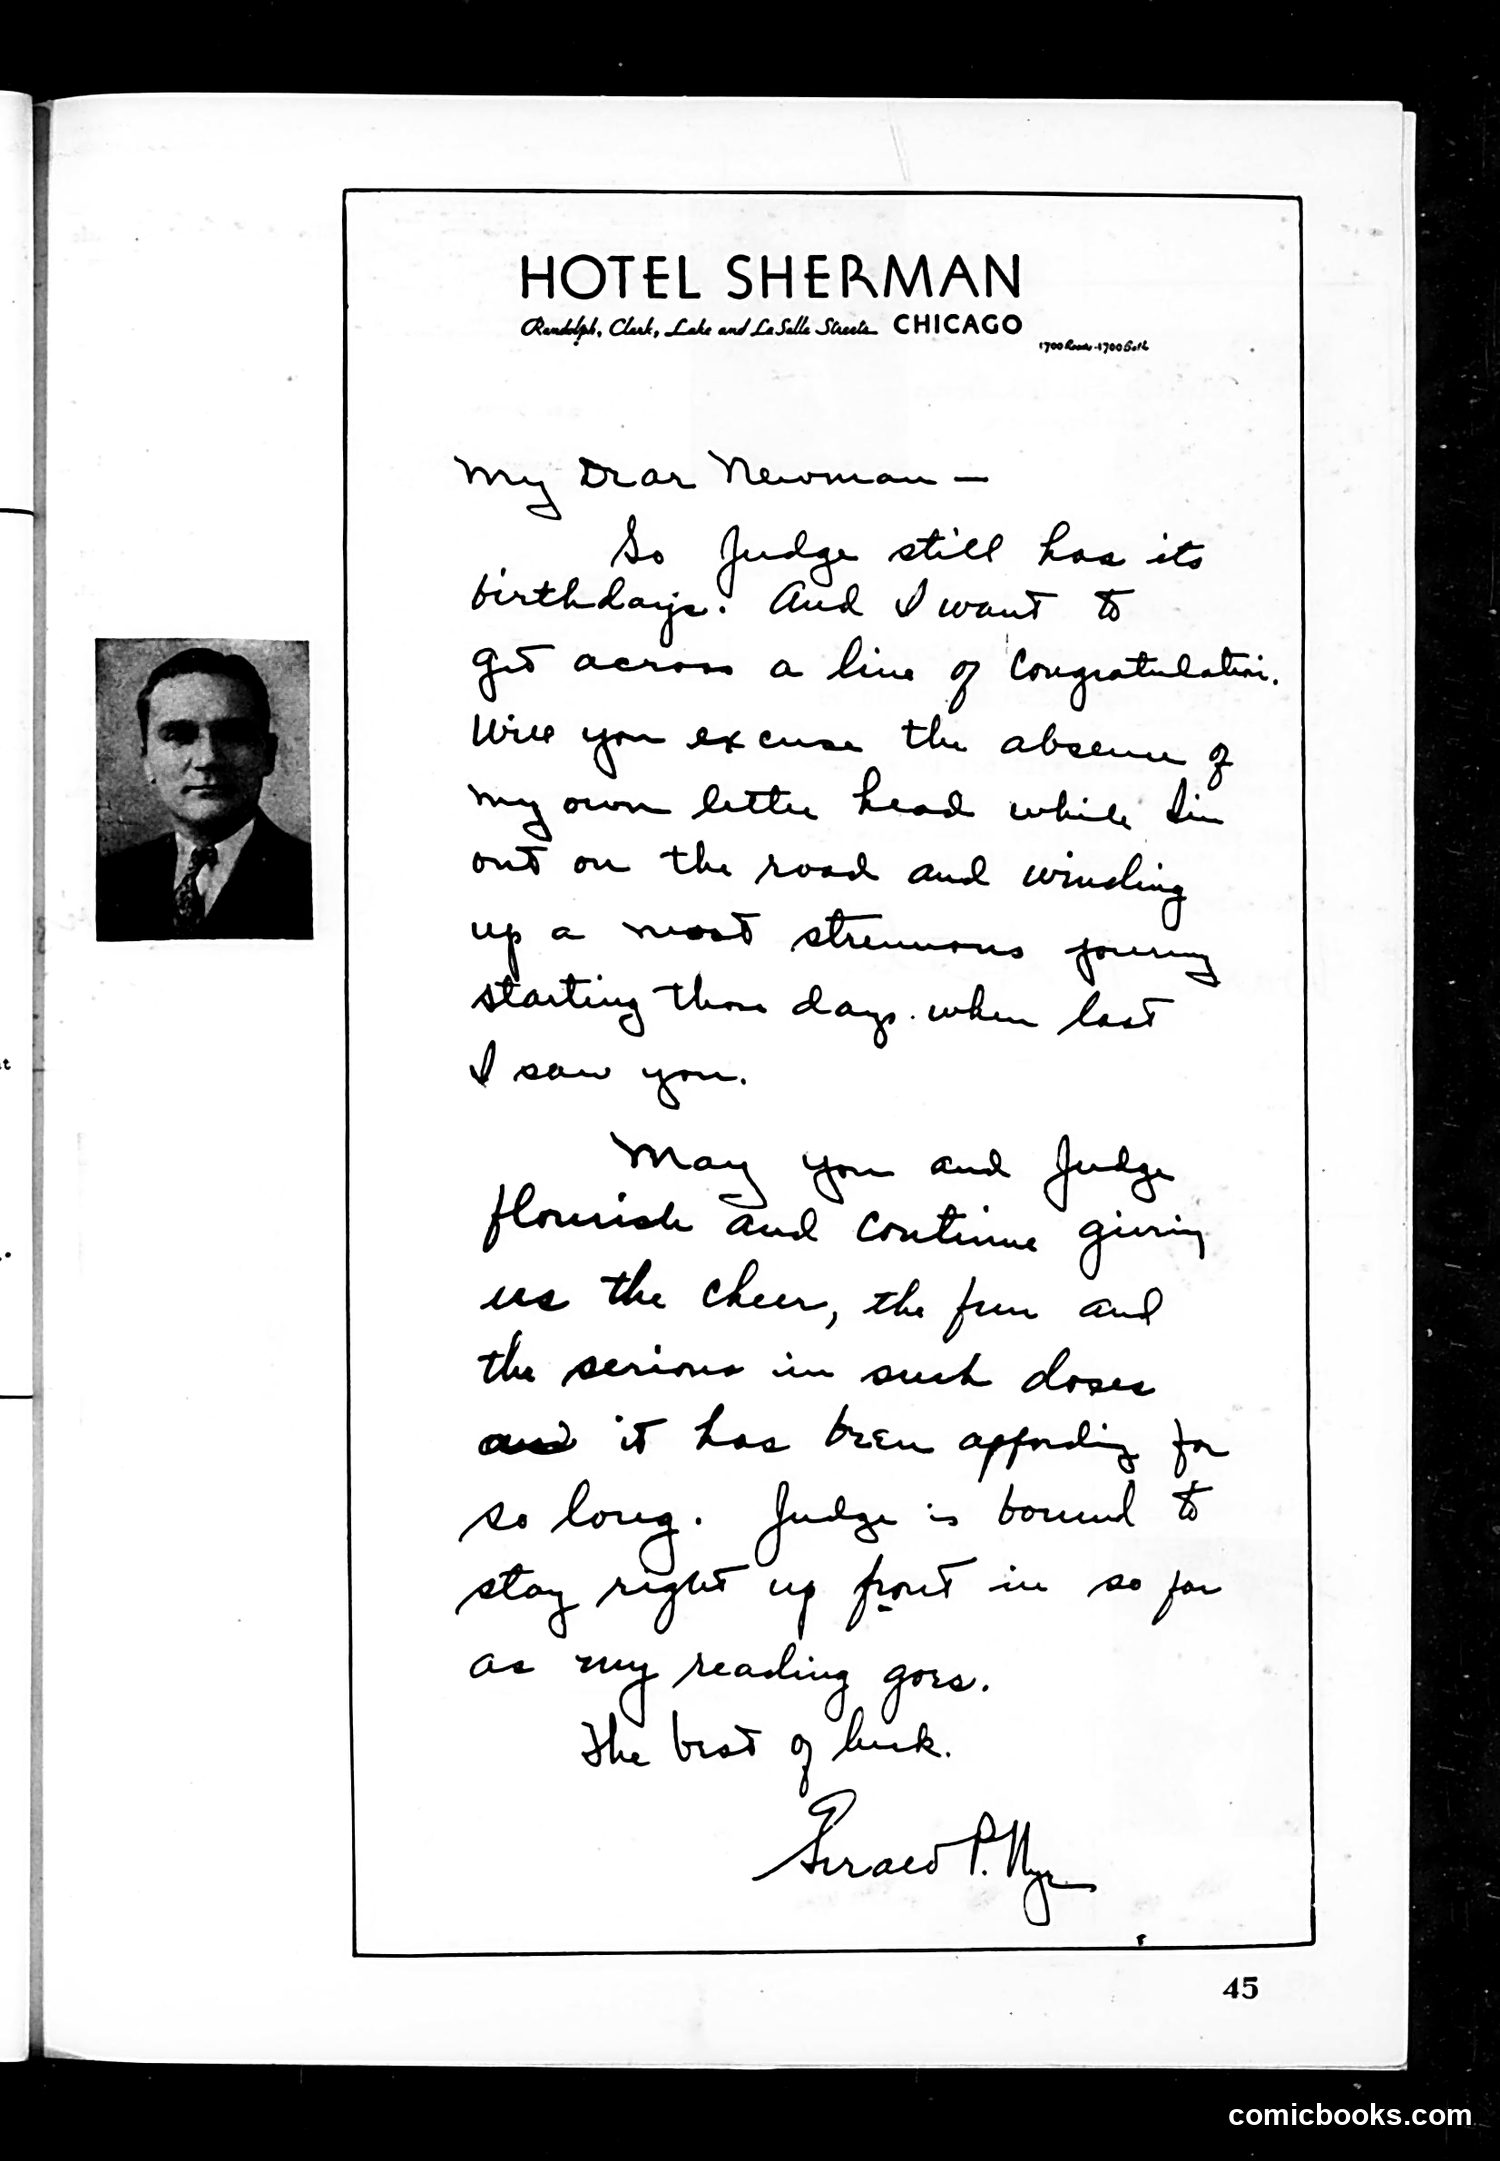 HOTEL SHERMAN
Randolph, Clark, Lake and La Salle Streets CHICAGO
1700 Rooms - 1700 Baths
My Dear Newman —
So Judge still has its
birthdays. And I want to
get across a line of congratulation.
Will you excuse the absence of
my own letter head while I'm
out on the road and winding
up a most strenuous journey
starting those days when last
I saw you.
May you and Judge
flourish and continue giving
us the cheer, the fun and
the serious in such doses
as it has been affording for
so long. Judge is bound to
stay right up front in so far
as my reading goes.
The best of luck.
Gerald P. Nye
45
t
comicbooks.com